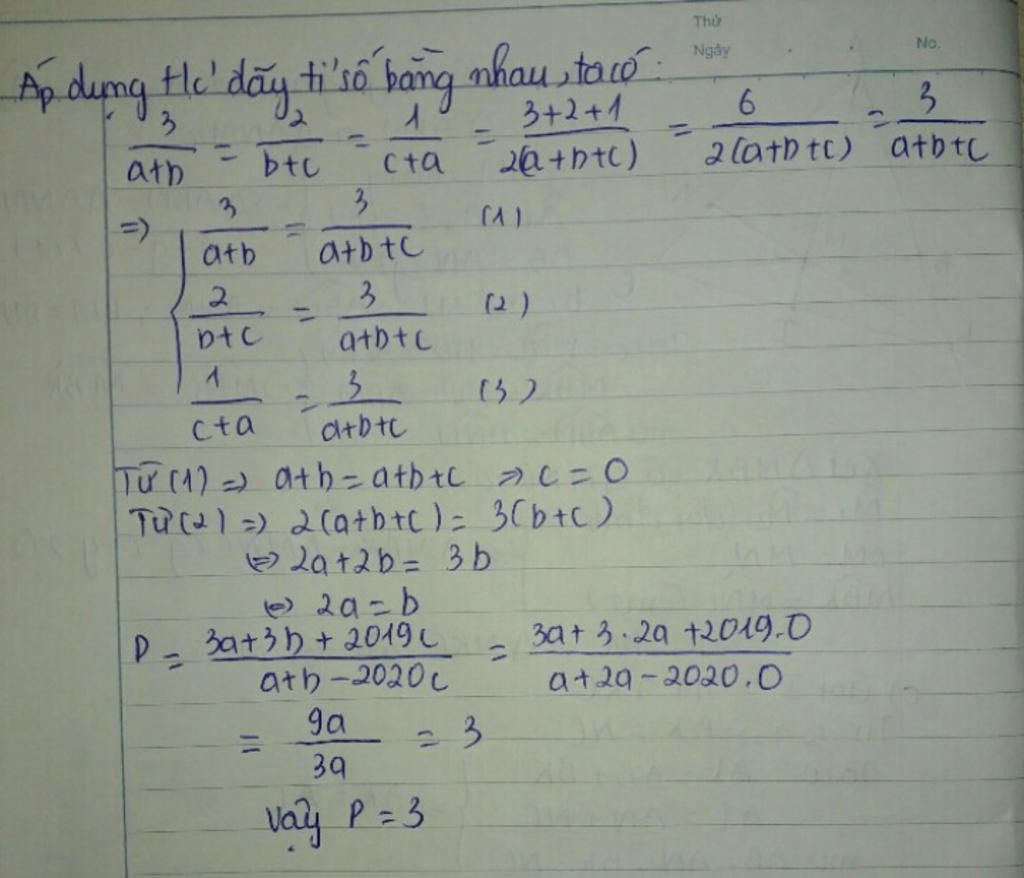 Thứ
Ngày No.
Áp dụng t/c dãy tỉ số bằng nhau, ta có:
3/(a+b) = 2/(b+c) = 1/(c+a) = (3+2+1)/(2(a+b+c)) = 6/(2(a+b+c)) = 3/(a+b+c)
=> { 3/(a+b) = 3/(a+b+c) (1)
2/(b+c) = 3/(a+b+c) (2)
1/(c+a) = 3/(a+b+c) (3)
Từ (1) => a+b = a+b+c => c = 0
Từ (2) => 2(a+b+c) = 3(b+c)
<=> 2a+2b = 3b
<=> 2a = b
P = (3a+3b+2019c)/(a+b-2020c) = (3a+3.2a+2019.0)/(a+2a-2020.0)
= 9a/3a = 3
vậy P = 3